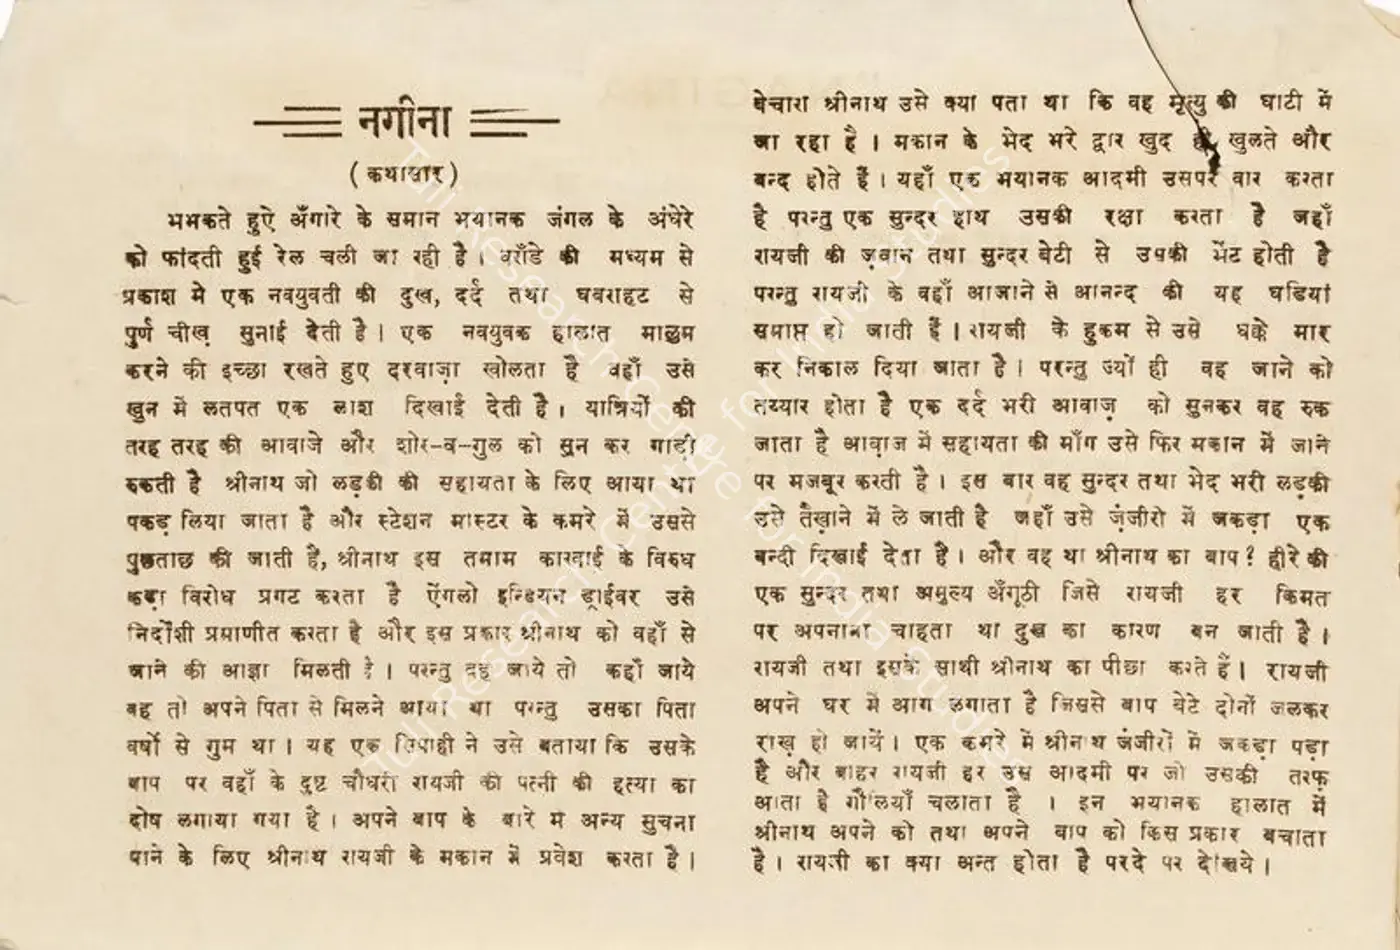 नगीना
(कथासार)
भभकते हुऐ अँगारे के समान भयानक जंगल के अंधेरे
को फांदती हुई रेल चली जा रही है। बराँडे की मध्यम से
प्रकाश मे एक नवयुवती की दुख, दर्द तथा घबराहट से
पुर्ण चीख़ सुनाई देती है। एक नवयुवक हालात मालुम
करने की इच्छा रखते हुए दरवाज़ा खोलता है वहाँ उसे
खुन में लतपत एक लाश दिखाई देती है। यात्रियों की
तरह तरह की आवाजे और शोर-व-गुल को सुन कर गाड़ी
रुकती है श्रीनाथ जो लड़की की सहायता के लिए आया था
पकड़ लिया जाता है और स्टेशन मास्टर के कमरे में उससे
पुछताछ की जाती है, श्रीनाथ इस तमाम कारवाई के विरुध
कड़ा विरोध प्रगट करता है ऐंगलो इन्डियन ड्राईवर उसे
निर्दोशी प्रमाणीत करता है और इस प्रकार श्रीनाथ को वहाँ से
जाने की आज्ञा मिलती है। परन्तु वह जाये तो कहाँ जाये
वह तो अपने पिता से मिलने आया था परन्तु उसका पिता
वर्षो से गुम था। यह एक सिपाही ने उसे बताया कि उसके
बाप पर वहाँ के दुष्ट चौधरी रायजी की पत्नी की हत्या का
दोष लगाया गया है। अपने बाप के बारे मे अन्य सुचना
पाने के लिए श्रीनाथ रायजी के मकान में प्रवेश करता है।
बेचारा श्रीनाथ उसे क्या पता था कि वह मृत्यु की घाटी में
जा रहा है। मकान के भेद भरे द्वार खुद ही खुलते और
बन्द होते हैं। यहाँ एक भयानक आदमी उसपर वार करता
है परन्तु एक सुन्दर हाथ उसकी रक्षा करता है जहाँ
रायजी की ज़वान तथा सुन्दर बेटी से उसकी भेंट होती है
परन्तु रायजी के वहाँ आजाने से आनन्द की यह घडियां
समाप्त हो जाती हैं। रायजी के हुकम से उसे धक्के मार
कर निकाल दिया जाता है। परन्तु ज्यों ही वह जाने को
तय्यार होता है एक दर्द भरी आवाज़ को सुनकर वह रुक
जाता है आवाज़ में सहायता की माँग उसे फिर मकान में जाने
पर मजबूर करती है। इस बार वह सुन्दर तथा भेद भरी लड़की
उसे तैख़ाने में ले जाती है जहाँ उसे ज़ंजीरो में जकड़ा एक
बन्दी दिखाई देता है। और वह था श्रीनाथ का बाप? हीरे की
एक सुन्दर तथा अमुल्य अँगूठी जिसे रायजी हर किमत
पर अपनाना चाहता था दुख का कारण बन जाती है।
रायजी तथा इसके साथी श्रीनाथ का पीछा करते हैं। रायजी
अपने घर में आग लगाता है जिससे बाप बेटे दोनों जलकर
राख़ हो जायें। एक कमरे में श्रीनाथ ज़ंजीरों में जकड़ा पड़ा
है और बाहर रायजी हर उस आदमी पर जो उसकी तरफ़
आता है गौलियाँ चलाता है । इन भयानक हालात में
श्रीनाथ अपने को तथा अपने बाप को किस प्रकार बचाता
है। रायजी का क्या अन्त होता है परदे पर देखिये।